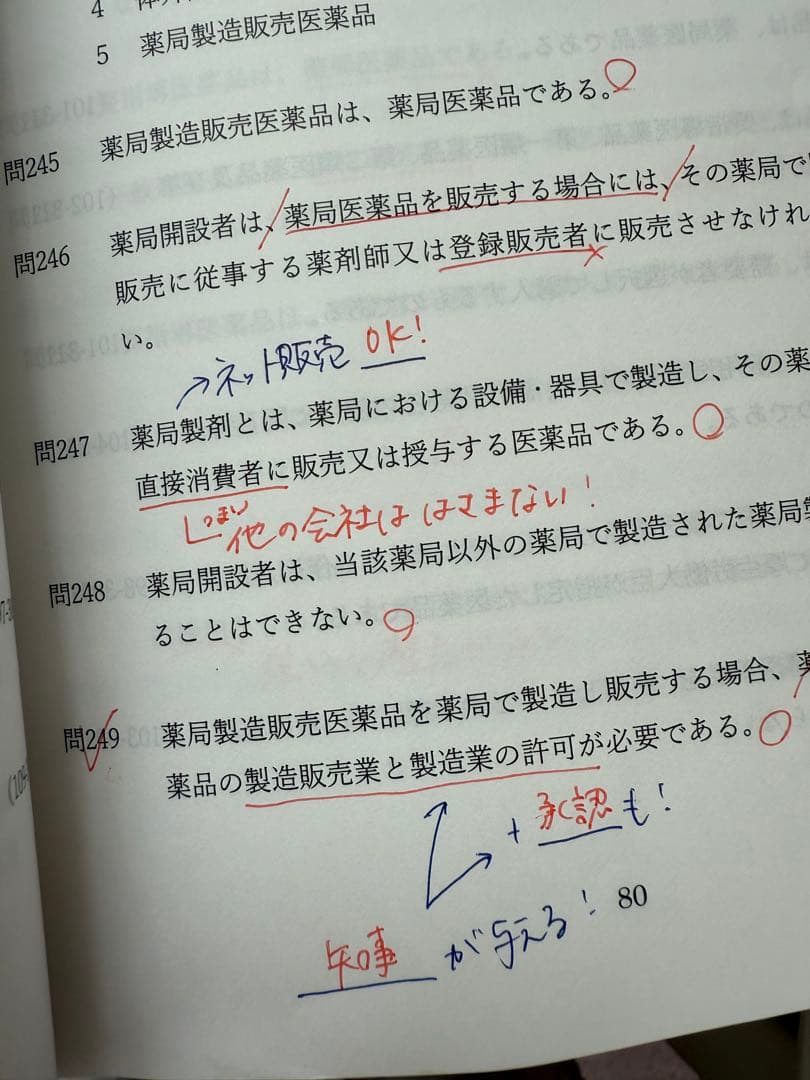 4
5 薬局製造販売医薬品
問245 薬局製造販売医薬品は、薬局医薬品である。
問246 薬局開設者は、薬局医薬品を販売する場合には、その薬局で
販売に従事する薬剤師又は登録販売者に販売させなけれ
い。
→ネット販売 OK!
問247 薬局製剤とは、薬局における設備・器具で製造し、その薬
直接消費者に販売又は授与する医薬品である。
つまり
他の会社は はさまない!
問248 薬局開設者は、当該薬局以外の薬局で製造された薬局製
ることはできない。
問249 薬局製造販売医薬品を薬局で製造し販売する場合、薬
薬品の製造販売業と製造業の許可が必要である。
+ 承認も!
知事が与える!
80